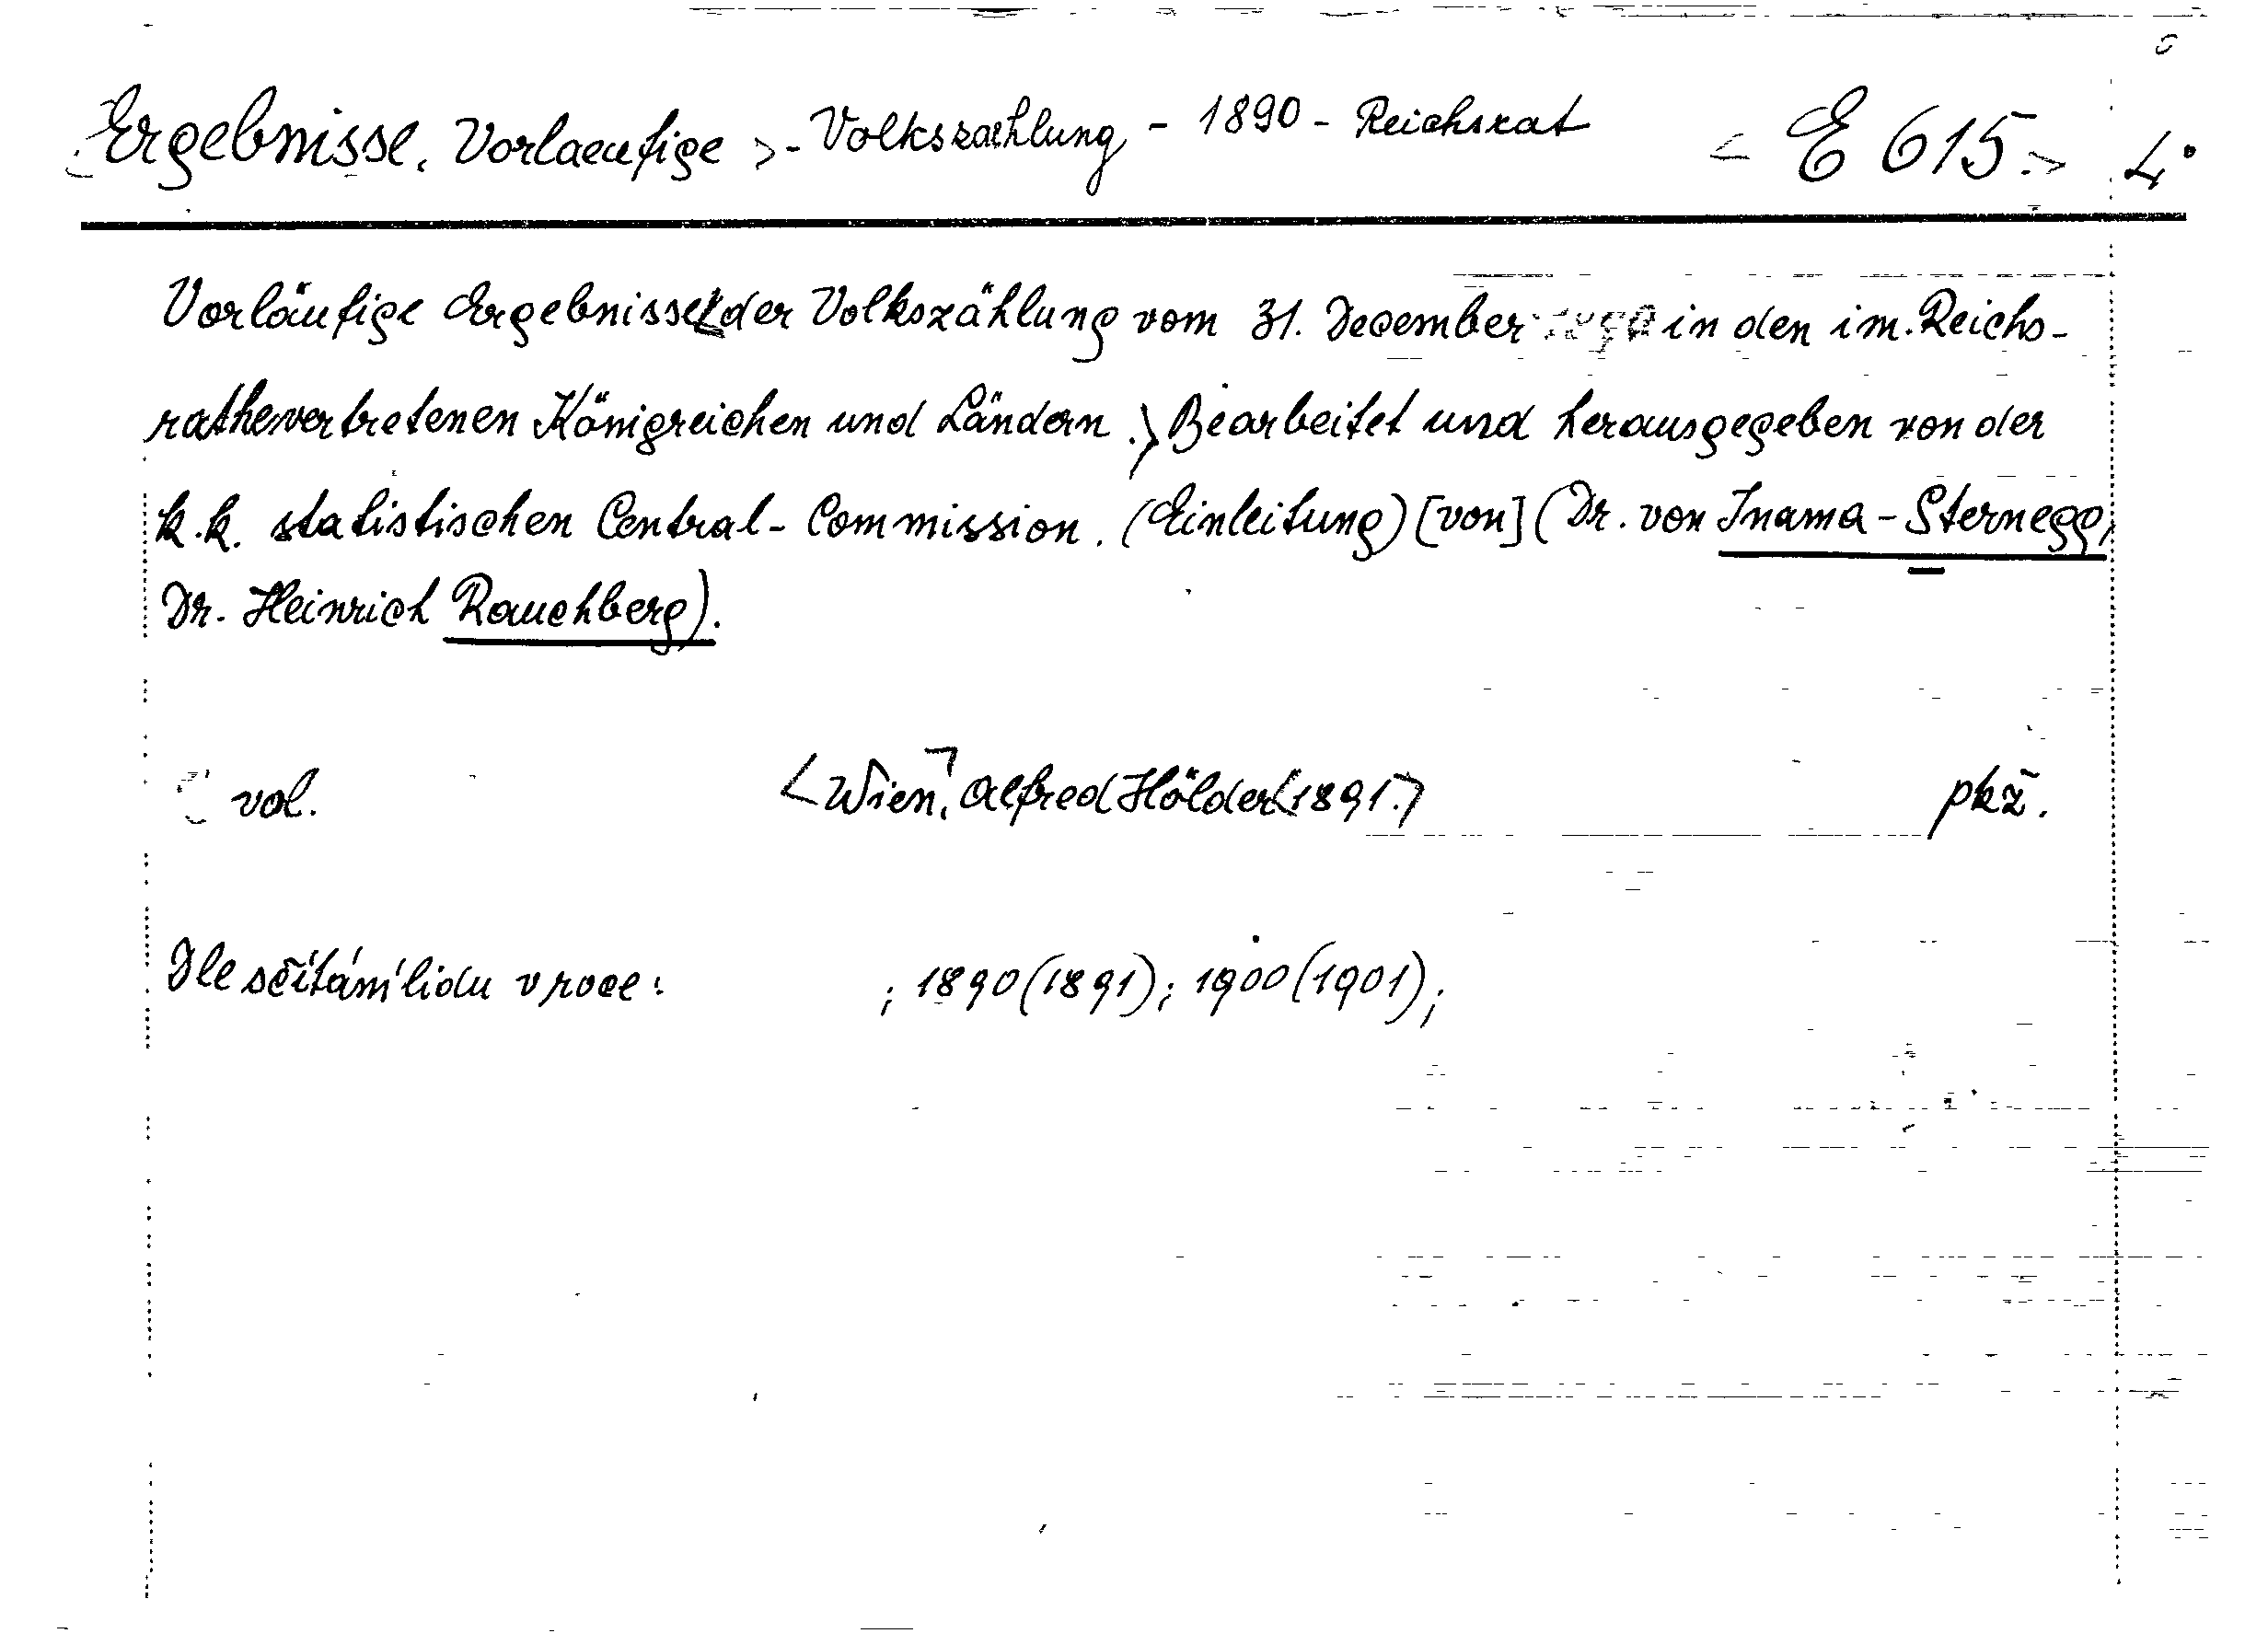 <Ergebnisse, Vorlaeufige >- Volkszaehlung - 1890 - Reichsrat < E 615.> 4°
Vorläufige Ergebnisse< der Volkszählung vom 31. December 1890 in den im Reichs-
rathe vertretenen Königreichen und Ländern.> Bearbeitet und herausgegeben von der
k.k. statistischen Central-Commission. (Einleitung) [von] (Dr. von Inama-Sternegg,
Dr. Heinrich Rauchberg).
vol. <Wien, Alfred Hölder<1891.> pkž.
Dle sčítání lidu v roce: ; 1890 (1891); 1900 (1901);